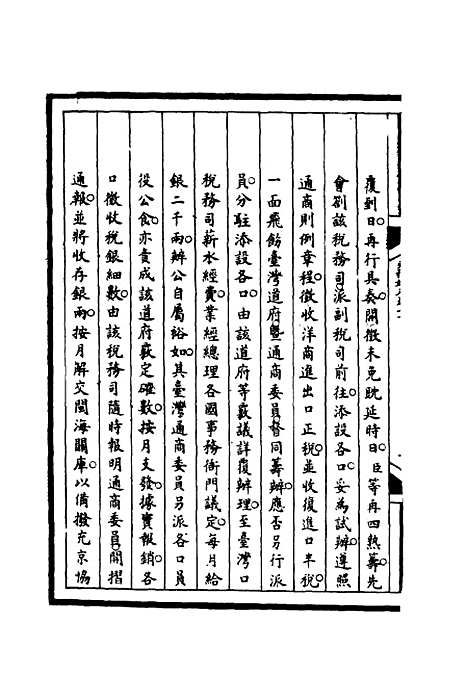 覆到日。再行具奏。開徵未免躭延時日。臣等再四熟籌。先
會劄該稅務司派副稅司前往添設各口。妥為試辦。遵照
通商則例章程。徵收洋商進出口正稅。並收復進口半稅。
一面飛飭臺灣道府暨通商委員督同籌辦。應否另行派
員。分駐添設各口。由該道府等嚴議詳復辦理。至臺灣口
稅務司薪水經費。業經總理各國事務衙門議定。每月給
銀二千兩。辦公自屬裕如。其臺灣通商委員另派各口員
役公食。亦責成該道府嚴定確數。按月支發。據實報銷。各
口徵收稅銀細數。由該稅務司隨時報明通商委員。開摺
通報。並將收存銀兩。按月解交閩海關庫。以備撥充京協